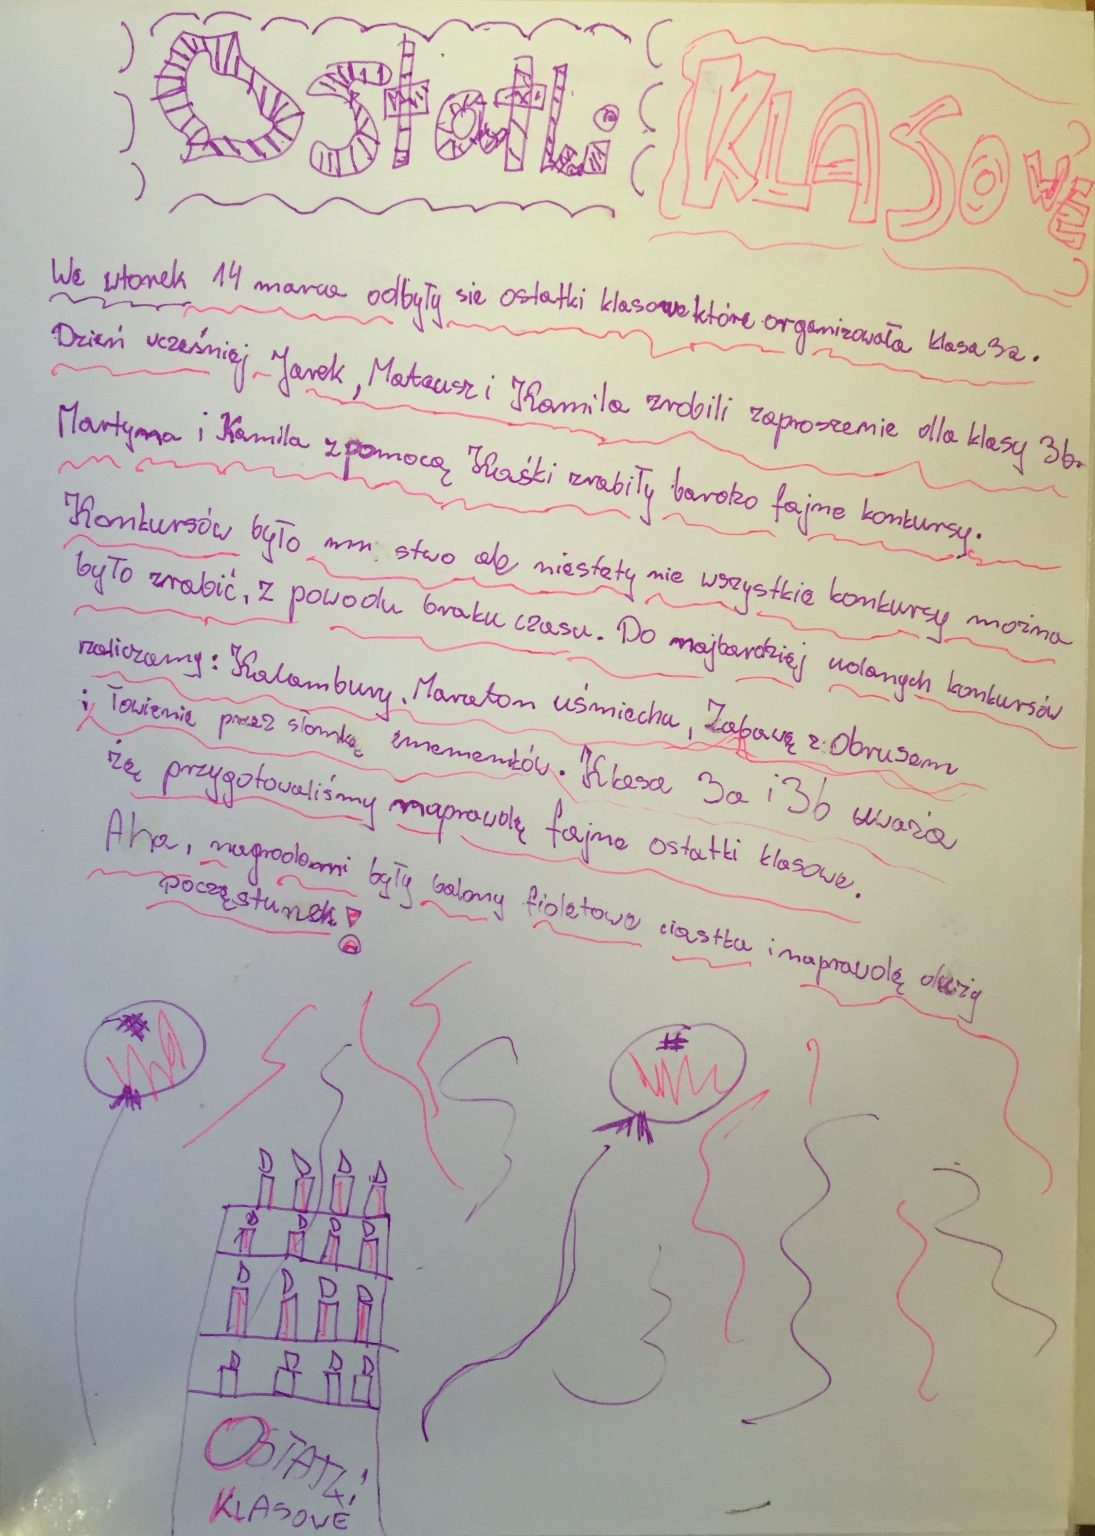 Ostatki KLASOWE
We wtorek 14 marca odbyły sie ostatki klasowe które organizowała klasa 3a.
Dzień wcześniej Jarek, Mateusz i Kamila zrobili zaproszenie dla klasy 3b.
Martyna i Kamila z pomocą Kaśki zrabiły bardzo fajne konkursy.
Konkursów było mnustwo ale niestety nie wszystkie konkursy można
było zrobić, z powodu braku czasu. Do najbardziej udanych konkursów
zaliczamy: Kalambury, Maraton uśmiechu, Zabawę z Obrusem
i łowienie przez słomkę . Klasa 3a i 3b uważa
że przygotowaliśmy naprawdę fajne ostatki klasowe.
Aha, nagrodami były balony fioletowe ciastka i naprawdę duży
poczęstunek!
OSTATKI
KLASOWE